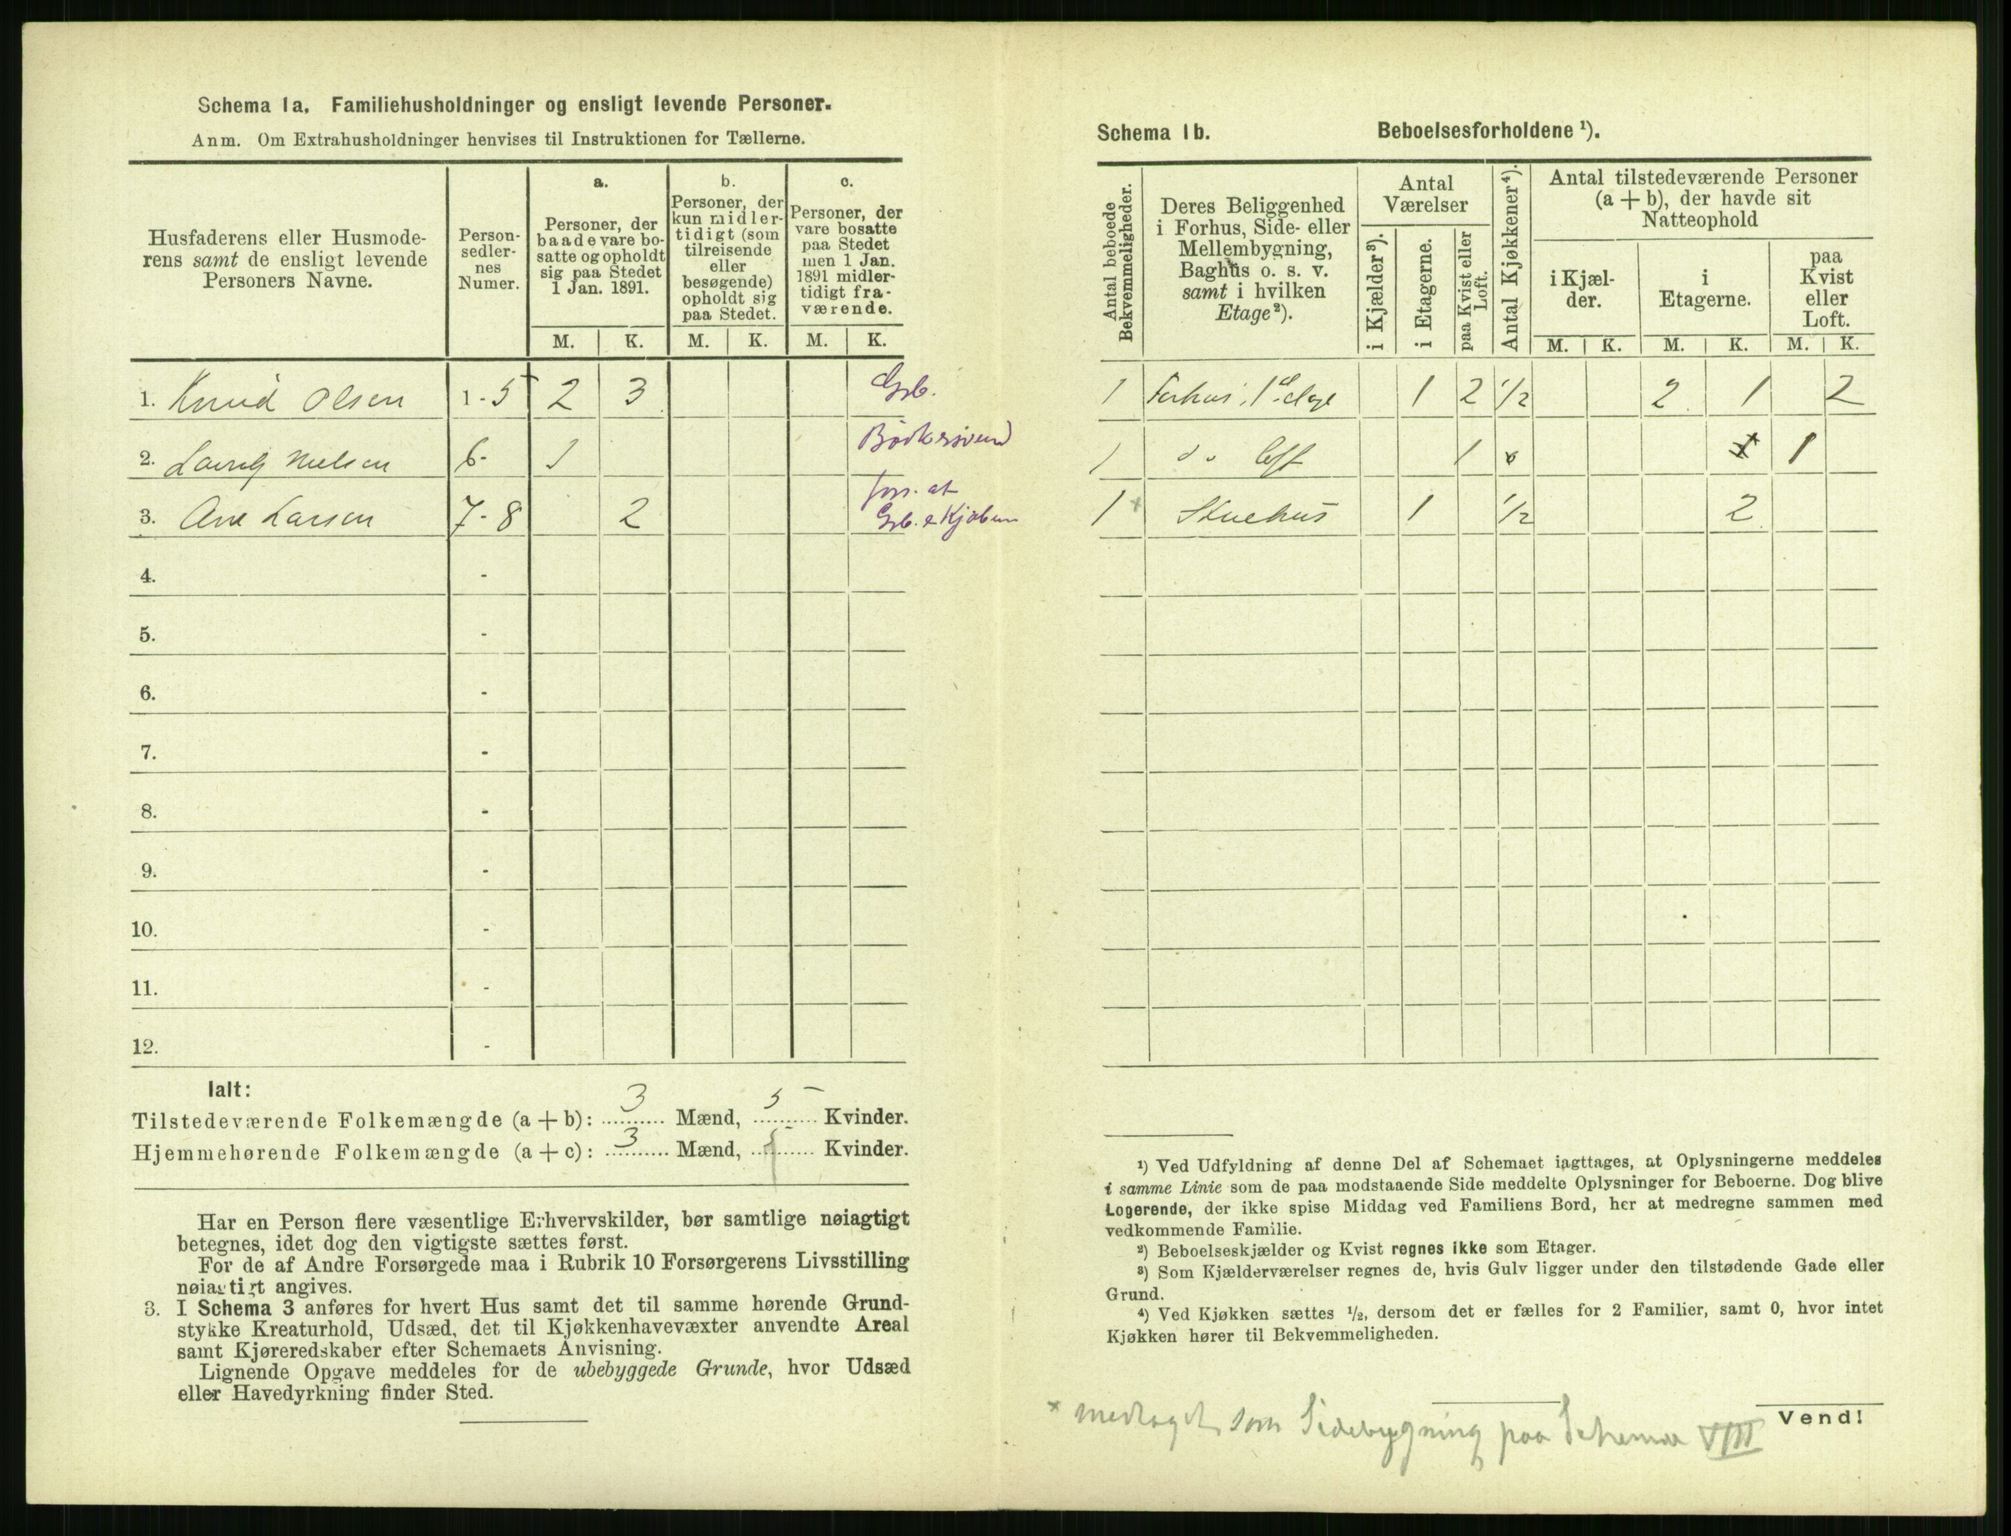 Schema 1a. Familiehusholdninger og ensligt levende Personer.
Anm. Om Extrahusholdninger henvises til Instruktionen for Tællerne.
Husfaderens eller Husmode-
rens samt de ensligt levende
Personers Navne.
Person-
sedler-
nes
Numer.
a.
Personer, der
baade vare bo-
satte og opholdt
sig paa Stedet
1 Jan. 1891.
b.
Personer, der
kun midler-
tidigt (som
tilreisende
eller
besøgende)
opholdt sig
paa Stedet.
c.
Personer, der
vare bosatte
paa Stedet
men 1 Jan.
1891 midler-
tidigt fra-
værende.
M. K. M. K. M. K.
1. Knud Olsen 1 - 5 2 3 Grb.
2. Nielsen 6 - 1 Bødkersvend
3. Ane Larsen 7 - 8 2 fors. at
Grb. & Kjøbm
4. -
5. -
6. -
7. -
8. -
9. -
10. -
11. -
12. -
Ialt:
Tilstedeværende Folkemængde (a + b): 3 Mænd, 5 Kvinder.
Hjemmehørende Folkemængde (a + c): 3 Mænd, 5 Kvinder.
Har en Person flere væsentlige Erhvervskilder, bør samtlige nøiagtigt
betegnes, idet dog den vigtigste sættes først.
For de af Andre Forsørgede maa i Rubrik 10 Forsørgerens Livsstilling
nøiagtigt angives.
3. I Schema 3 anføres for hvert Hus samt det til samme hørende Grund-
stykke Kreaturhold, Udsæd, det til Kjøkkenhavevæxter anvendte Areal
samt Kjøreredskaber efter Schemaets Anvisning.
Lignende Opgave meddeles for de ubebyggede Grunde, hvor Udsæd
eller Havedyrkning finder Sted.
Schema 1b. Beboelsesforholdene ¹).
Antal beboede
Bekvemmeligheder.
Deres Beliggenhed
i Forhus, Side- eller
Mellembygning,
Baghus o. s. v.
samt i hvilken
Etage²).
Antal
Værelser
i Kjælder³).
i Etagerne.
paa Kvist eller
Loft.
Antal Kjøkkener⁴).
Antal tilstedeværende Personer
(a + b), der havde sit
Natteophold
i Kjæl-
der.
i
Etagerne.
paa
Kvist
eller
Loft.
M. K. M. K. M. K.
1 Forhus, 1 Etage 1 2 1/2 2 1 2
1 Loft 1 0 1
1 Stuehus 1 1/2 2
¹) Ved Udfyldning af denne Del af Schemaet iagttages, at Oplysningerne meddeles
i samme Linie som de paa modstaaende Side meddelte Oplysninger for Beboerne. Dog blive
Logerende, der ikke spise Middag ved Familiens Bord, her at medregne sammen med
vedkommende Familie.
²) Beboelseskjælder og Kvist regnes ikke som Etager.
³) Som Kjælderværelser regnes de, hvis Gulv ligger under den tilstødende Gade eller
Grund.
⁴) Ved Kjøkken sættes ½, dersom det er fælles for 2 Familier, samt 0, hvor intet
Kjøkken hører til Bekvemmeligheden.
Vend!
× medtaget som Sidebygning paa Schema VIII